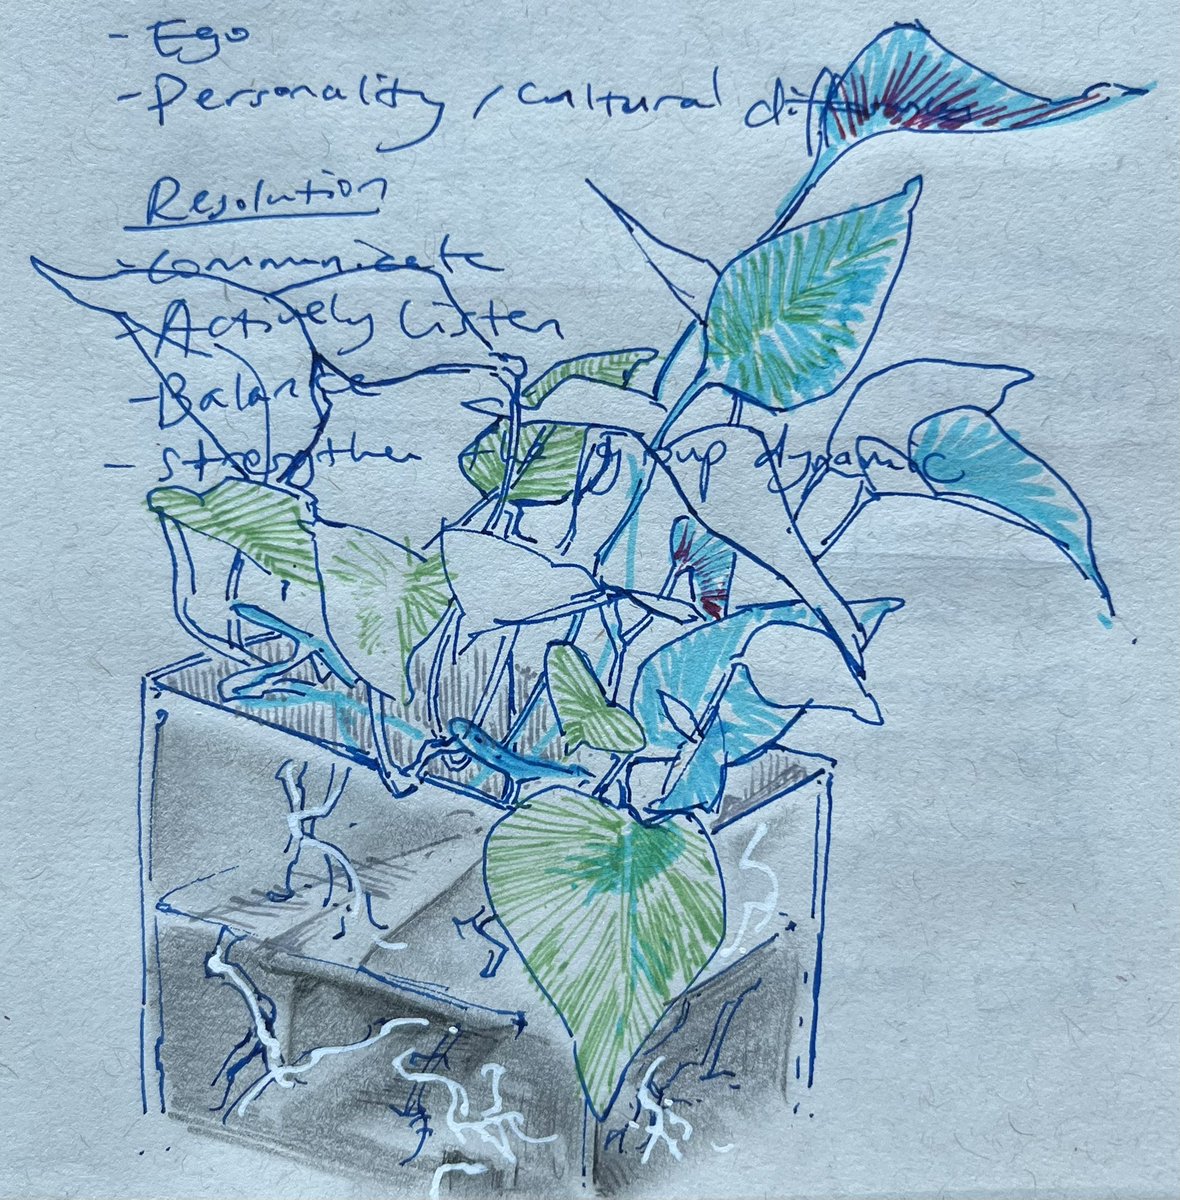 - Ego
- Personality / cultural differences
Resolution
- Communicate
- Actively Listen
- Balance
- strengthen the group dynamic